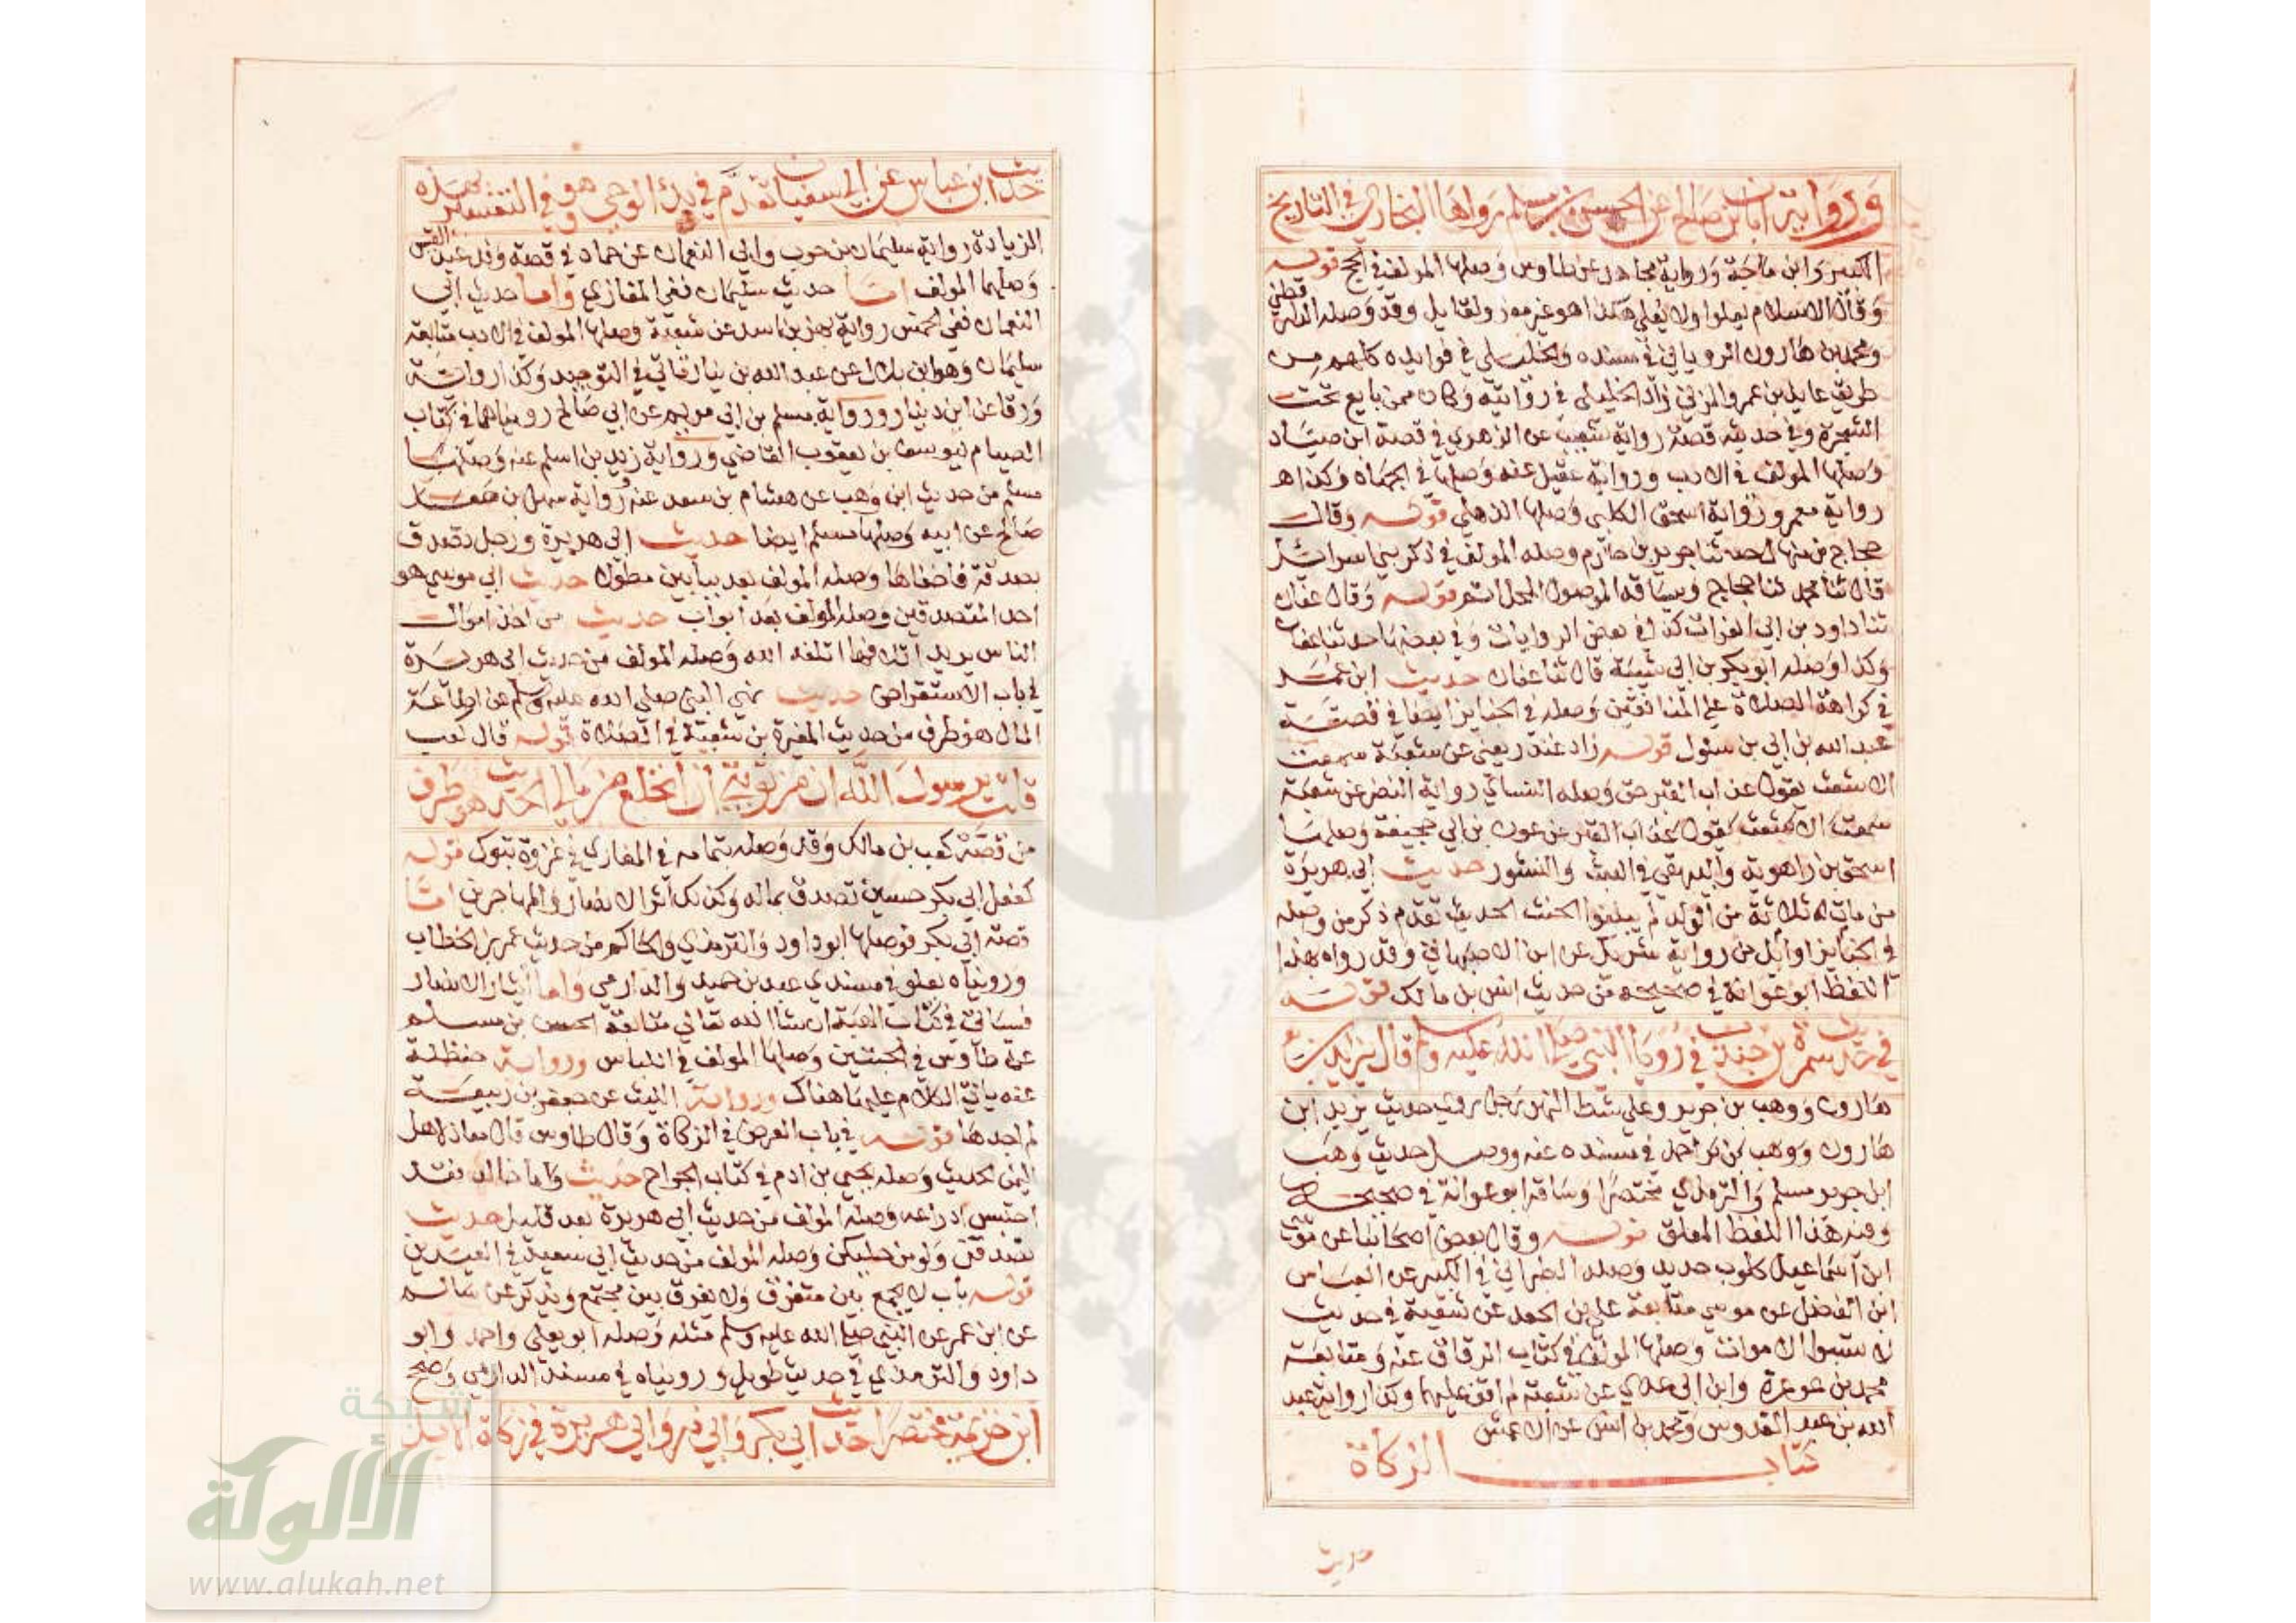 ورواية ابان بن صالح عن الحسن بن مسلم رواها البخاري في التاريخ
الكبير وابن ماجة ورواية مجاهد عن طاوس وصلها المولف في الحج قوله
وقال الاسلام يعلوا ولا يعلي هكذا هو غير معزو لقايل وقد وصله الدارقطني
ومحمد بن هارون الروياني في مسنده والخليلي في فوايده كلهم من
طريق عايد بن عمرو المزني زاد الخليلي في روايته وكان ممن بايع تحت
الشجرة وفي حديثه قصة رواية شعيب عن الزهري في قصة ابن صياد
وصلها المولف في الادب ورواية عقيل عنه وصلها في الجهاد وكذا
رواية معمر ورواية اسحق الكلبي وصلها الذهلي قوله وقال
حجاج بن منهال حدثنا جرير بن حازم وصله المولف في ذكر بني اسرائيل
قال ثنا محمد ثنا حجاج وساقه الموصول قوله وقال عفان
ثنا داود بن ابي الفرات كذا في بعض الروايات وفي بعضها حدثنا عفان
وكذا وصله ابو بكر بن ابي شيبة قال ثنا عفان حديث ابن عمر
في كراهة الصلاة علي المنافقين وصله في الجنايز ايضا في قصة
عبد الله بن ابي بن سلول قوله زاد غندر يعني عن شعبة سمعت
الاشعث يقول عذاب القبر حق وصله النساي رواية النضر عن شعبة
سمعت الاشعث يقول عذاب القبر عن عون بن ابي جحيفة وصلها
اسحق بن راهوية والبيهقي في البعث والنشور حديث ابي هريرة
من مات له ثلاثة من الولد لم يبلغوا الحنث الحديث تقدم ذكر من وصله
في الجنايز اوايل من رواية شريك عن ابن الاصبهاني وقد رواه بهذا
اللفظ ابو عوانة في صحيحه من حديث انس بن مالك قوله
في حديث سمرة بن جندب في رويا النبي صلي الله عليه وسلم قال يزيد بن
هارون ووهب بن جرير وعلي شط النهر رجل حديث يزيد ابن
هارون احمد في مسنده عنه ووصل حديث وهب
ابن جرير مسلم والترمذي مختصرا وساقه ابو عوانة في صحيحه
وفيه هذا اللفظ المعلق قوله وقال بعض اصحابنا عن موسي
ابن اسماعيل كلوب حديد وصله الطبراني في الكبير عن العباس
ابن الفضل عن موسي متابعة علي بن الجعد عن شعبة في حديث
لا تسبوا الاموات وصلها المولف في كتاب الرقاق عنه ومتابعة
محمد بن عرعرة وابن ابي عدي عن شعبة لم اقف عليها وكذا رواية عبد
الله بن عبد القدوس ومحمد بن انس عن الاعمش
كتاب الزكاة
حديث
حديث ابن عباس عن ابي سفيان تقدم في بدء الوحي وهو في التفسير بهذه
الزيادة رواية سليمان بن حرب وابي النعمان عن حماد في قصة وفد عبد القيس
وصلهما المولف اما حديث سليمان ففي المغازي واما حديث ابي
النعمان ففي الخمس رواية بهز بن اسد عن شعبة وصلها المولف في الادب متابعة
سليمان وهو ابن بلال عن عبد الله بن دينار تاتي في التوحيد وكذا رواية
ورقا عن ابن دينار ورواية مسلم بن ابي مريم عن ابي صالح رويناهما في كتاب
الصيام ليوسف بن يعقوب القاضي ورواية زيد بن اسلم عنه وصلها
مسلم من حديث ابن وهب عن هشام بن سعد عنه ورواية سهيل بن
صالح عن ابيه وصلها مسلم ايضا حديث ابي هريرة ورجل تصدق
بصدقة فاخفاها وصله المولف بعد ببابين مطول حديث ابي موسي هو
احد المتصدقين وصله المولف بعد ابواب حديث من اخذ اموال
الناس يريد اتلافها اتلفه الله وصله المولف من حديث ابي هريرة
في باب الاستقراض حديث نهي النبي صلي الله عليه وسلم عن اضاعة
المال هو طرف من حديث المغيرة بن شعبة في الصلاة قوله قال كعب
قلت يرسول الله ان من توبتي ان انخلع من مالي الحديث هو طرف
من قصة كعب بن مالك وقد وصله بتمامه في المغازي في غزوة تبوك قوله
كفعل ابي بكر حسين تصدق بماله وكذلك اثر الانصار والمهاجرين اما
قصة ابي بكر فوصلها ابو داود والترمذي والحاكم من حديث عمر بن الخطاب
ورويناه بعلو في مسندي عبد بن حميد والدارمي واما ايثار الانصار
فسياتي في كتاب الهبة ان شا الله تعالي متابعة الحسن بن مسلم
عن طاوس في الجبتين وصلها المولف في اللباس ورواية حنظلة
عنه ياتي الكلام عليها هناك ورواية الليث عن جعفر بن ربيعة
لم اجدها قوله في باب العرض في الزكاة وقال طاوس قال معاذ لاهل
اليمن الحديث وصله يحيي بن ادم في كتاب الخراج حديث واما خالد فقد
احتبس ادراعه وصله المولف من حديث ابي هريرة بعد قليل حديث
تصدقن ولو من حليكن وصله المولف من حديث ابي سعيد في العيدين
قوله باب لا يجمع بين متفرق ولا يفرق بين مجتمع ويذكر عن سالم
عن ابن عمر عن النبي صلي الله عليه وسلم مثله وصله ابو يعلي واحمد وابو
داود والترمذي في حديث طويل ورويناه في مسند الدارمي وصححه
ابن خزيمة مختصرا حديث ابي بكر وابي ذر وابي هريرة في زكاة الابل
شبكة
الألوكة
www.alukah.net